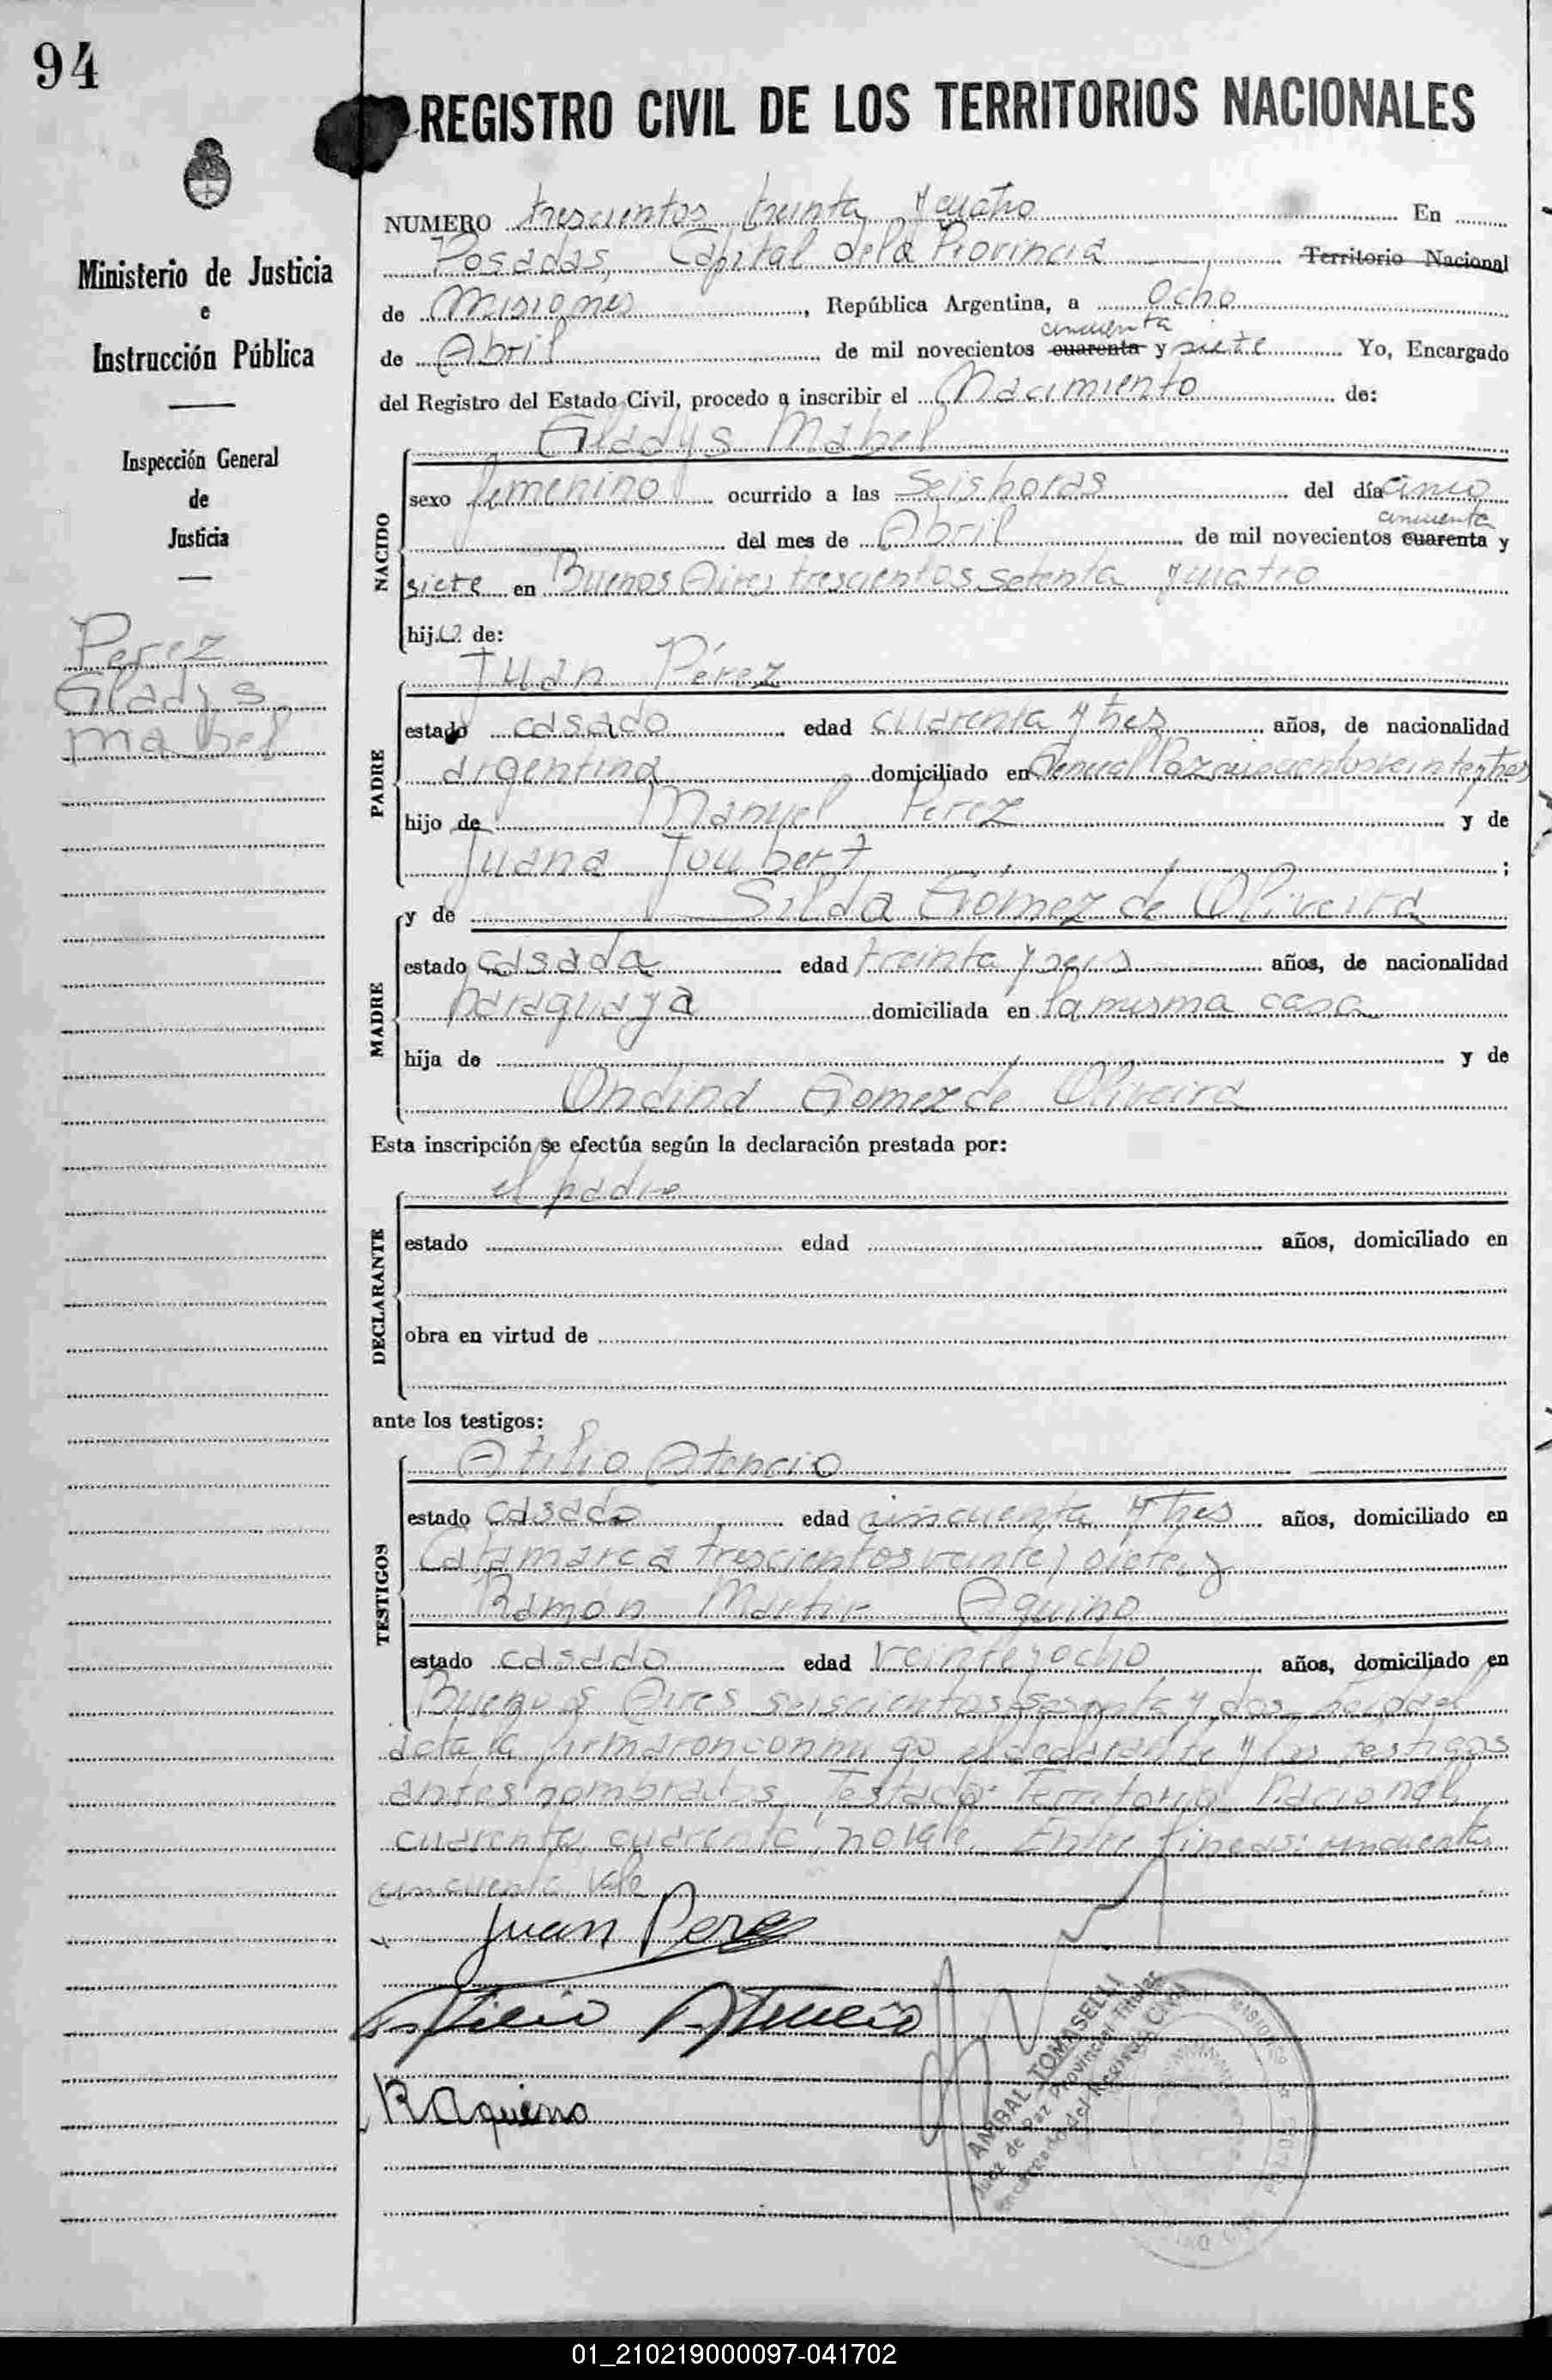 94
REGISTRO CIVIL DE LOS TERRITORIOS NACIONALES
Ministerio de Justicia
e
Instrucción Pública
Inspección General
de
Justicia
Perez
Gladys
Mabel
NUMERO trescientos treinta y cuatro En
Posadas, Capital de la Provincia Territorio Nacional
de Misiones, República Argentina, a ocho
cincuenta
de Abril de mil novecientos cuarenta y siete Yo, Encargado
del Registro del Estado Civil, procedo a inscribir el Nacimiento de:
Gladys Mabel
NACIDO
sexo femenino ocurrido a las seis horas del día cinco
cincuenta
del mes de Abril de mil novecientos cuarenta y
siete en Buenos Aires trescientos setenta y cuatro
hija de:
Juan Pérez
PADRE
estado casado edad cuarenta y tres años, de nacionalidad
argentina domiciliado en General Paz
hijo de Manuel Perez y de
Juana Joubert ;
MADRE
y de Silda Gómez de Oliveira
estado casada edad treinta y seis años, de nacionalidad
paraguaya domiciliada en la misma casa
hija de y de
Ondina Gomez de Oliveira
Esta inscripción se efectúa según la declaración prestada por:
el padre
DECLARANTE
estado edad años, domiciliado en
obra en virtud de
ante los testigos:
Atilio Atencio
TESTIGOS
estado casado edad cincuenta y tres años, domiciliado en
Catamarca trescientos veinte y siete y
Ramón Martir Aquino
estado casado edad veinte y ocho años, domiciliado en
Buenos Aires seiscientos sesenta y dos
acta la firmaron conmigo el declarante y los testigos
antes nombrados. Testado: Territorio Nacional
cuarenta, cuarenta, no vale. Entre líneas: cincuenta
cincuenta vale
Juan Perez
Atilio Atencio
R Aquino
ANIBAL TOMASELLI
Juez de Paz Provincial Titular
Encargado del Registro Civil
MISIONES
01_210219000097-041702